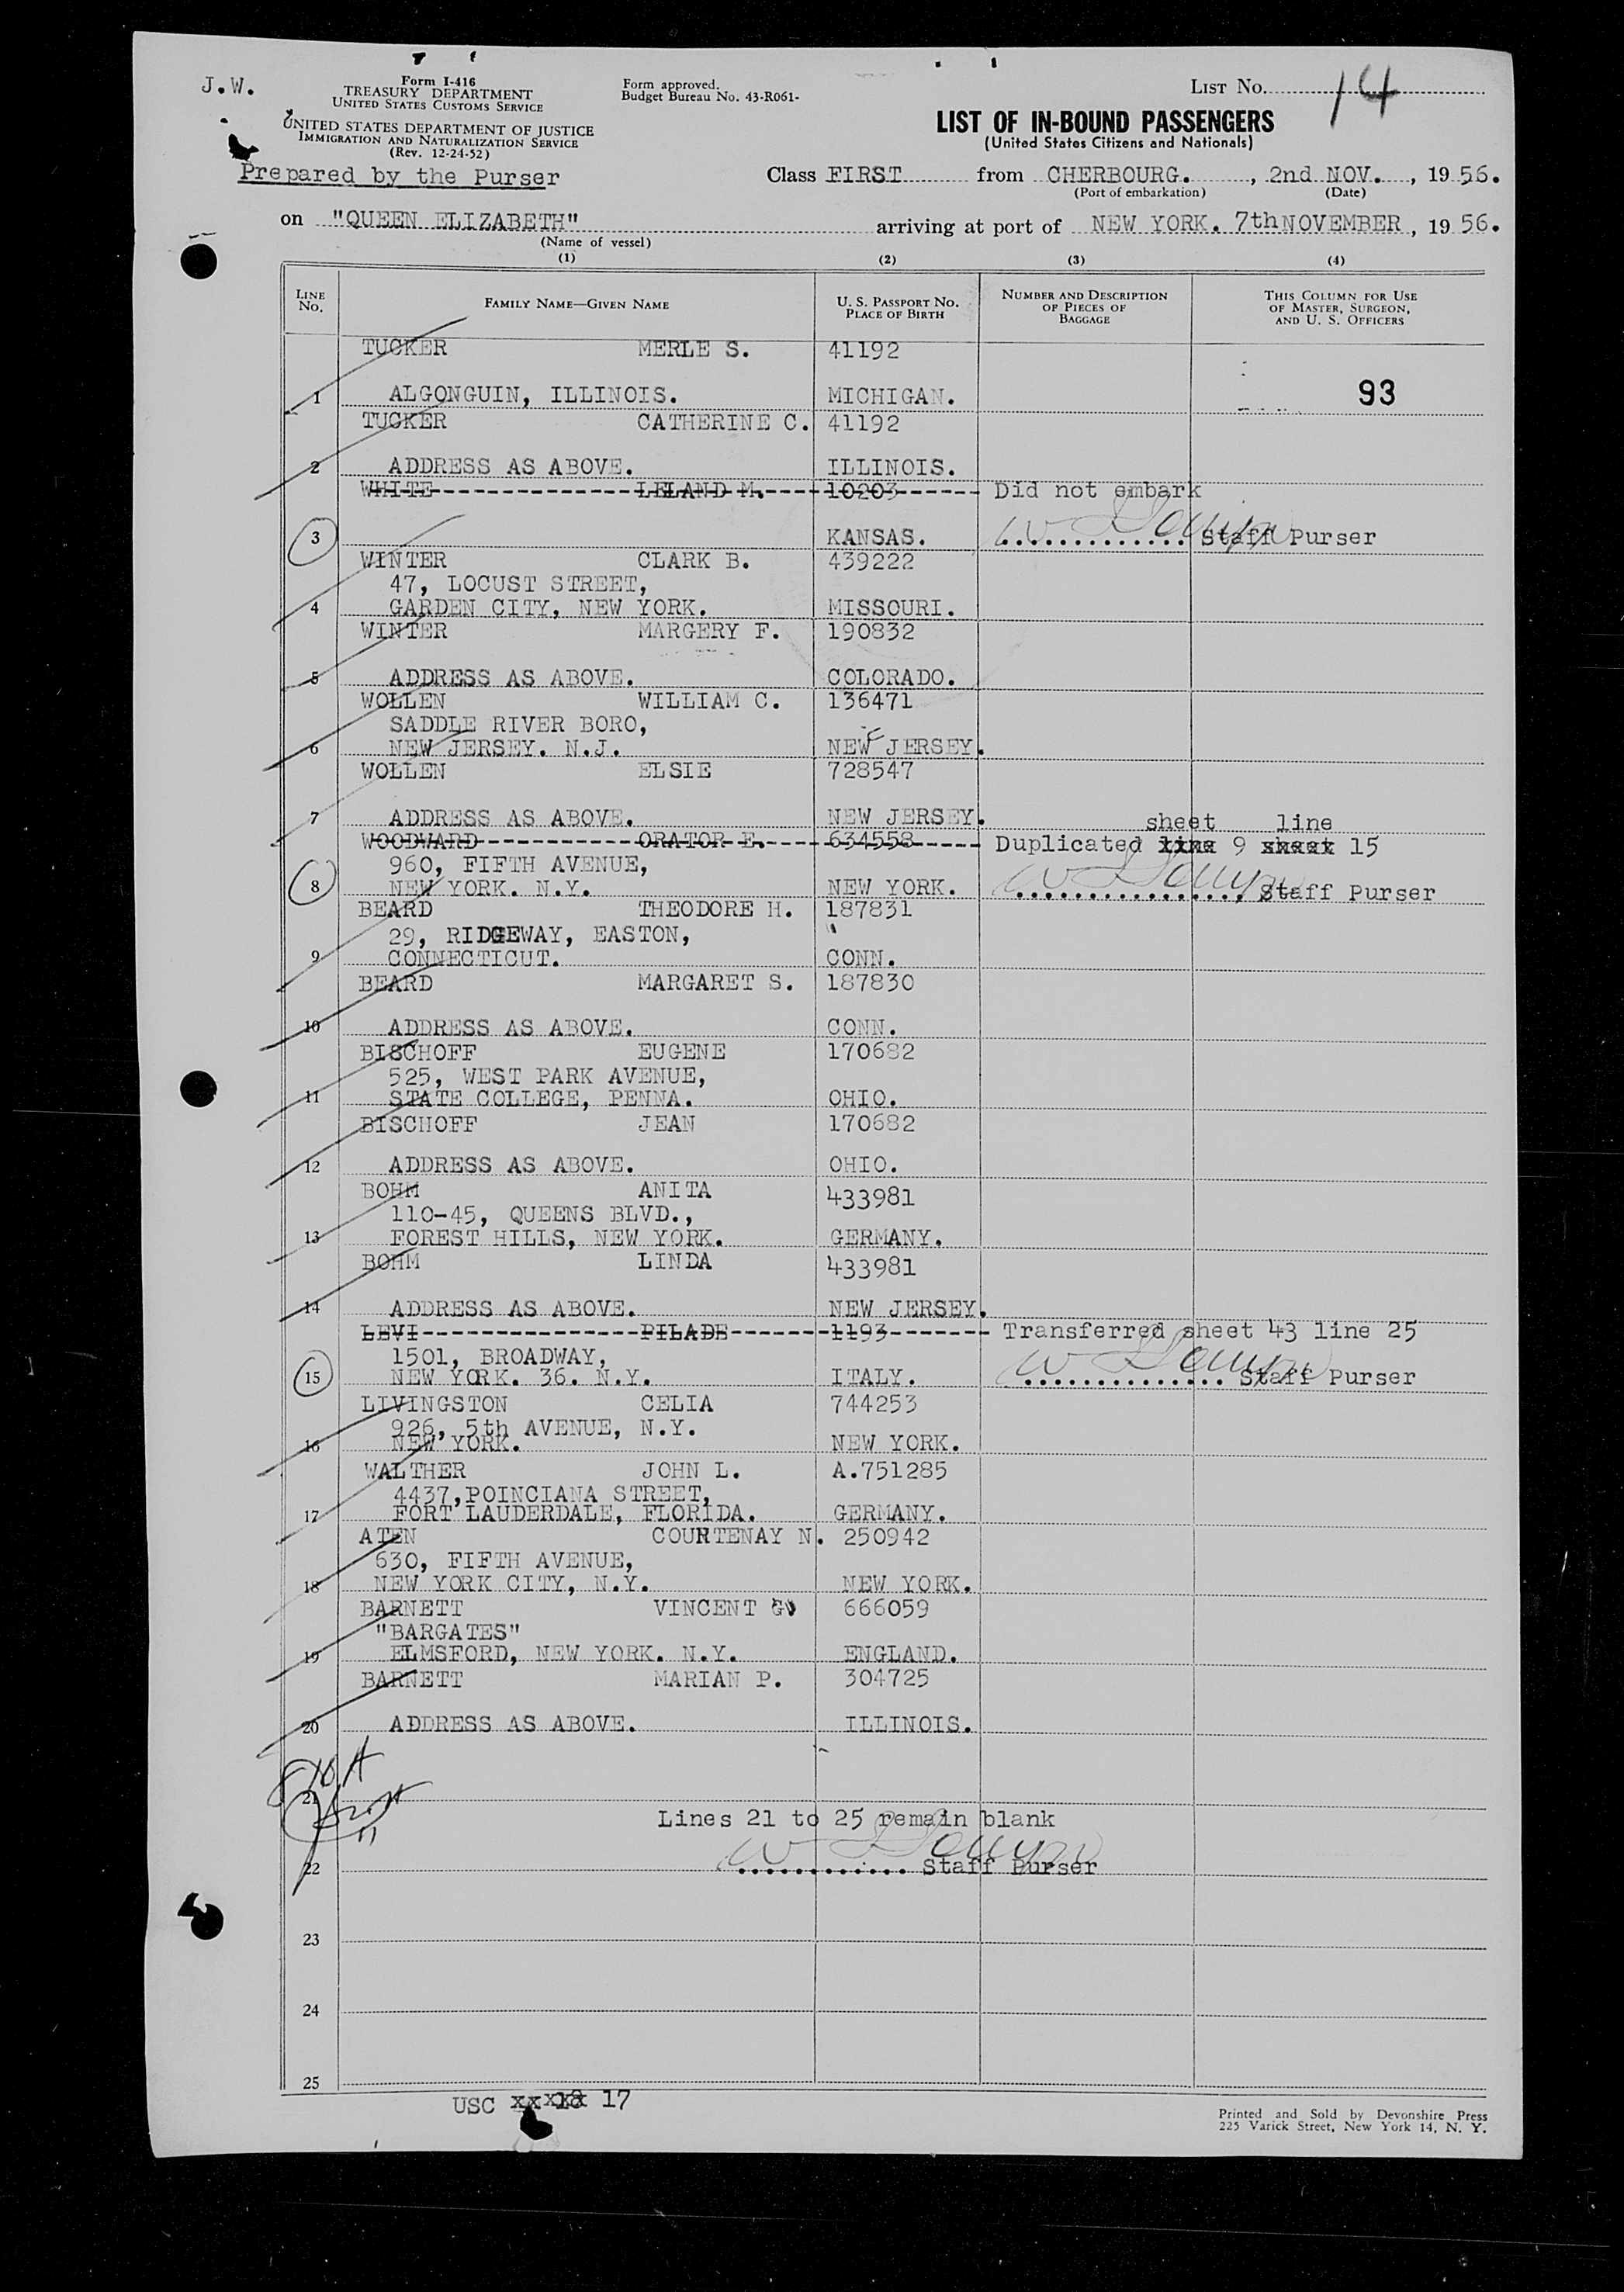 J.W.
Form I-416
TREASURY DEPARTMENT
UNITED STATES CUSTOMS SERVICE
UNITED STATES DEPARTMENT OF JUSTICE
IMMIGRATION AND NATURALIZATION SERVICE
(Rev. 12-24-52)
Prepared by the Purser
Form approved.
Budget Bureau No. 43-R061-
LIST NO. 14
LIST OF IN-BOUND PASSENGERS
(United States Citizens and Nationals)
Class FIRST from CHERBOURG. , 2nd NOV. , 1956.
(Port of embarkation) (Date)
on "QUEEN ELIZABETH" arriving at port of NEW YORK. 7th NOVEMBER , 1956.
(Name of vessel)
(1) (2) (3) (4)
LINE NO. FAMILY NAME—GIVEN NAME U. S. PASSPORT NO. PLACE OF BIRTH NUMBER AND DESCRIPTION OF PIECES OF BAGGAGE THIS COLUMN FOR USE OF MASTER, SURGEON, AND U. S. OFFICERS
TUCKER MERLE S. 41192
1 ALGONGUIN, ILLINOIS. MICHIGAN. 93
TUCKER CATHERINE C. 41192
2 ADDRESS AS ABOVE. ILLINOIS.
WHITE LELAND M. 10203 Did not embark
3 KANSAS. Staff Purser
WINTER CLARK B. 439222
47, LOCUST STREET,
4 GARDEN CITY, NEW YORK. MISSOURI.
WINTER MARGERY F. 190832
5 ADDRESS AS ABOVE. COLORADO.
WOLLEN WILLIAM C. 136471
SADDLE RIVER BORO,
6 NEW JERSEY. N.J. NEW JERSEY.
WOLLEN ELSIE 728547
7 ADDRESS AS ABOVE. NEW JERSEY.
sheet line
WOODWARD ORATOR E. 634558 Duplicated line 9 sheet 15
960, FIFTH AVENUE,
8 NEW YORK. N.Y. NEW YORK. Staff Purser
BEARD THEODORE H. 187831
29, RIDGEWAY, EASTON,
9 CONNECTICUT. CONN.
BEARD MARGARET S. 187830
10 ADDRESS AS ABOVE. CONN.
BISCHOFF EUGENE 170682
525, WEST PARK AVENUE,
11 STATE COLLEGE, PENNA. OHIO.
BISCHOFF JEAN 170682
12 ADDRESS AS ABOVE. OHIO.
BOHM ANITA 433981
110-45, QUEENS BLVD.,
13 FOREST HILLS, NEW YORK. GERMANY.
BOHM LINDA 433981
14 ADDRESS AS ABOVE. NEW JERSEY.
LEVI PILADE 1193 Transferred sheet 43 line 25
1501, BROADWAY,
15 NEW YORK. 36. N.Y. ITALY. Staff Purser
LIVINGSTON CELIA 744253
926, 5th AVENUE, N.Y.
16 NEW YORK. NEW YORK.
WALTHER JOHN L. A.751285
4437, POINCIANA STREET,
17 FORT LAUDERDALE, FLORIDA. GERMANY.
ATEN COURTENAY N. 250942
630, FIFTH AVENUE,
18 NEW YORK CITY, N.Y. NEW YORK.
BARNETT VINCENT G 666059
"BARGATES"
19 ELMSFORD, NEW YORK. N.Y. ENGLAND.
BARNETT MARIAN P. 304725
20 ADDRESS AS ABOVE. ILLINOIS.
21
Lines 21 to 25 remain blank
22 Staff Purser
23
24
25
USC 17
Printed and Sold by Devonshire Press
225 Varick Street, New York 14, N. Y.